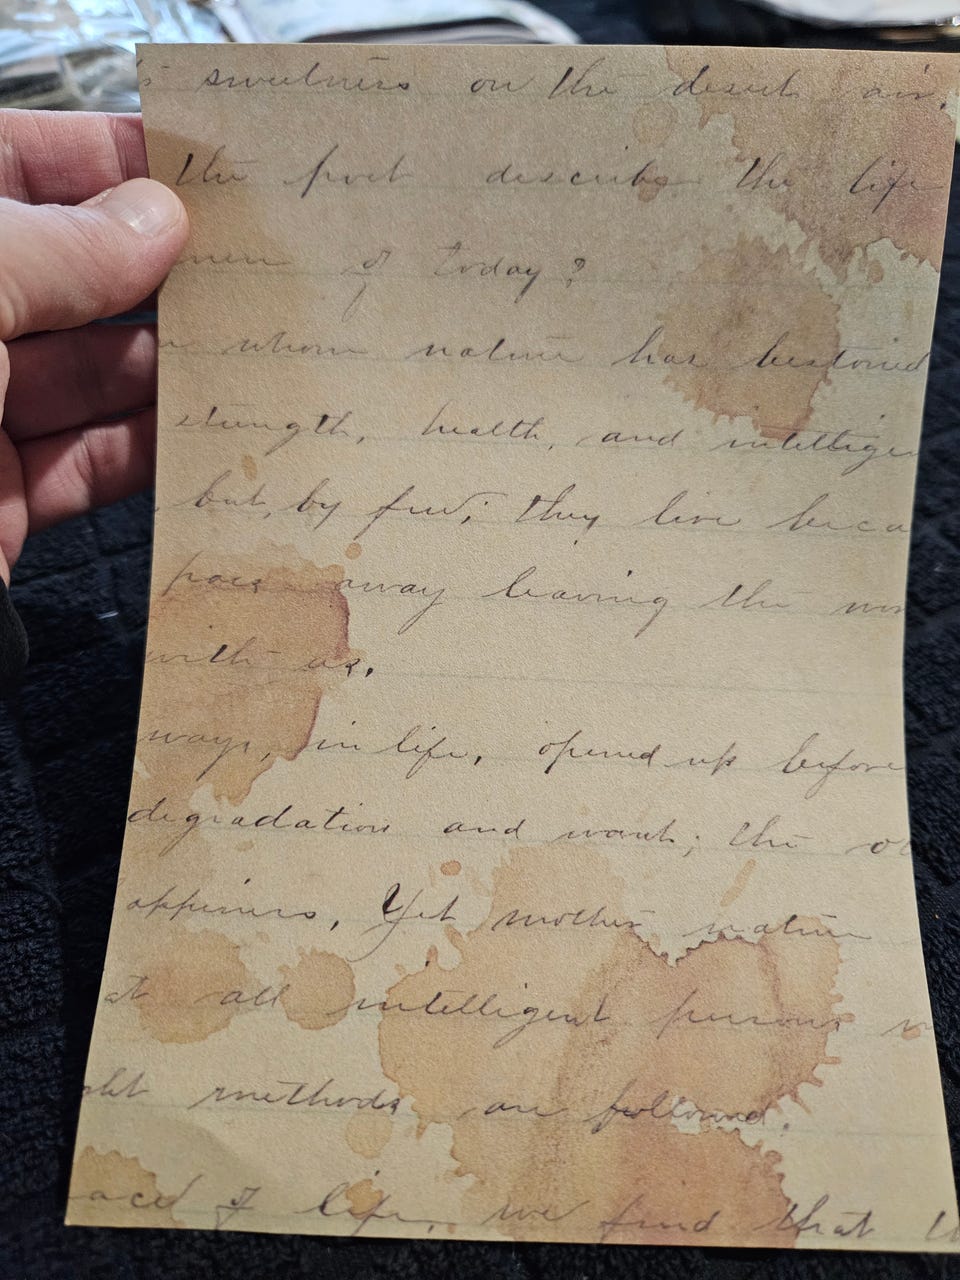 sweetness on the desert air.
the poet describe the life
men of today?
whom nature has bestowed
strength, health, and intelligen
, but, by few; they live beca
pass away leaving the wor
with us.
ways, in life, opened up before
degradation and want; the ot
appiness. Yet mother nature
at all intelligent persons
ght methods are followed.
of life, we find that